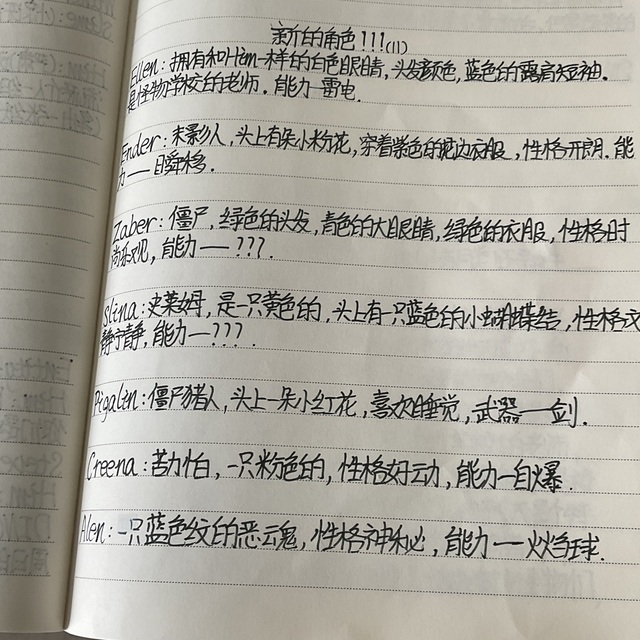 新的角色!!!(1)
Ellen:拥有和Him一样的白色眼睛,头发颜色,蓝色的露肩短袖.
是怪物学校的老师.能力—雷电.
Ender:末影人,头上有朵小粉花,穿着紫色的花边衣服,性格开朗.能
力——瞬移.
Zaber:僵尸,绿色的头发,青色的大眼睛,绿色的衣服,性格时
尚乐观,能力——???.
Slina:史莱姆,是一只黄色的,头上有一只蓝色的小蝴蝶结,性格文
静宁静,能力—???.
Pigalin:僵尸猪人,头上一朵小红花,喜欢睡觉,武器—剑.
Creena:苦力怕,一只粉色的,性格好动,能力—自爆.
Alen:一只蓝色纹的恶魂,性格神秘,能力——火焰球.